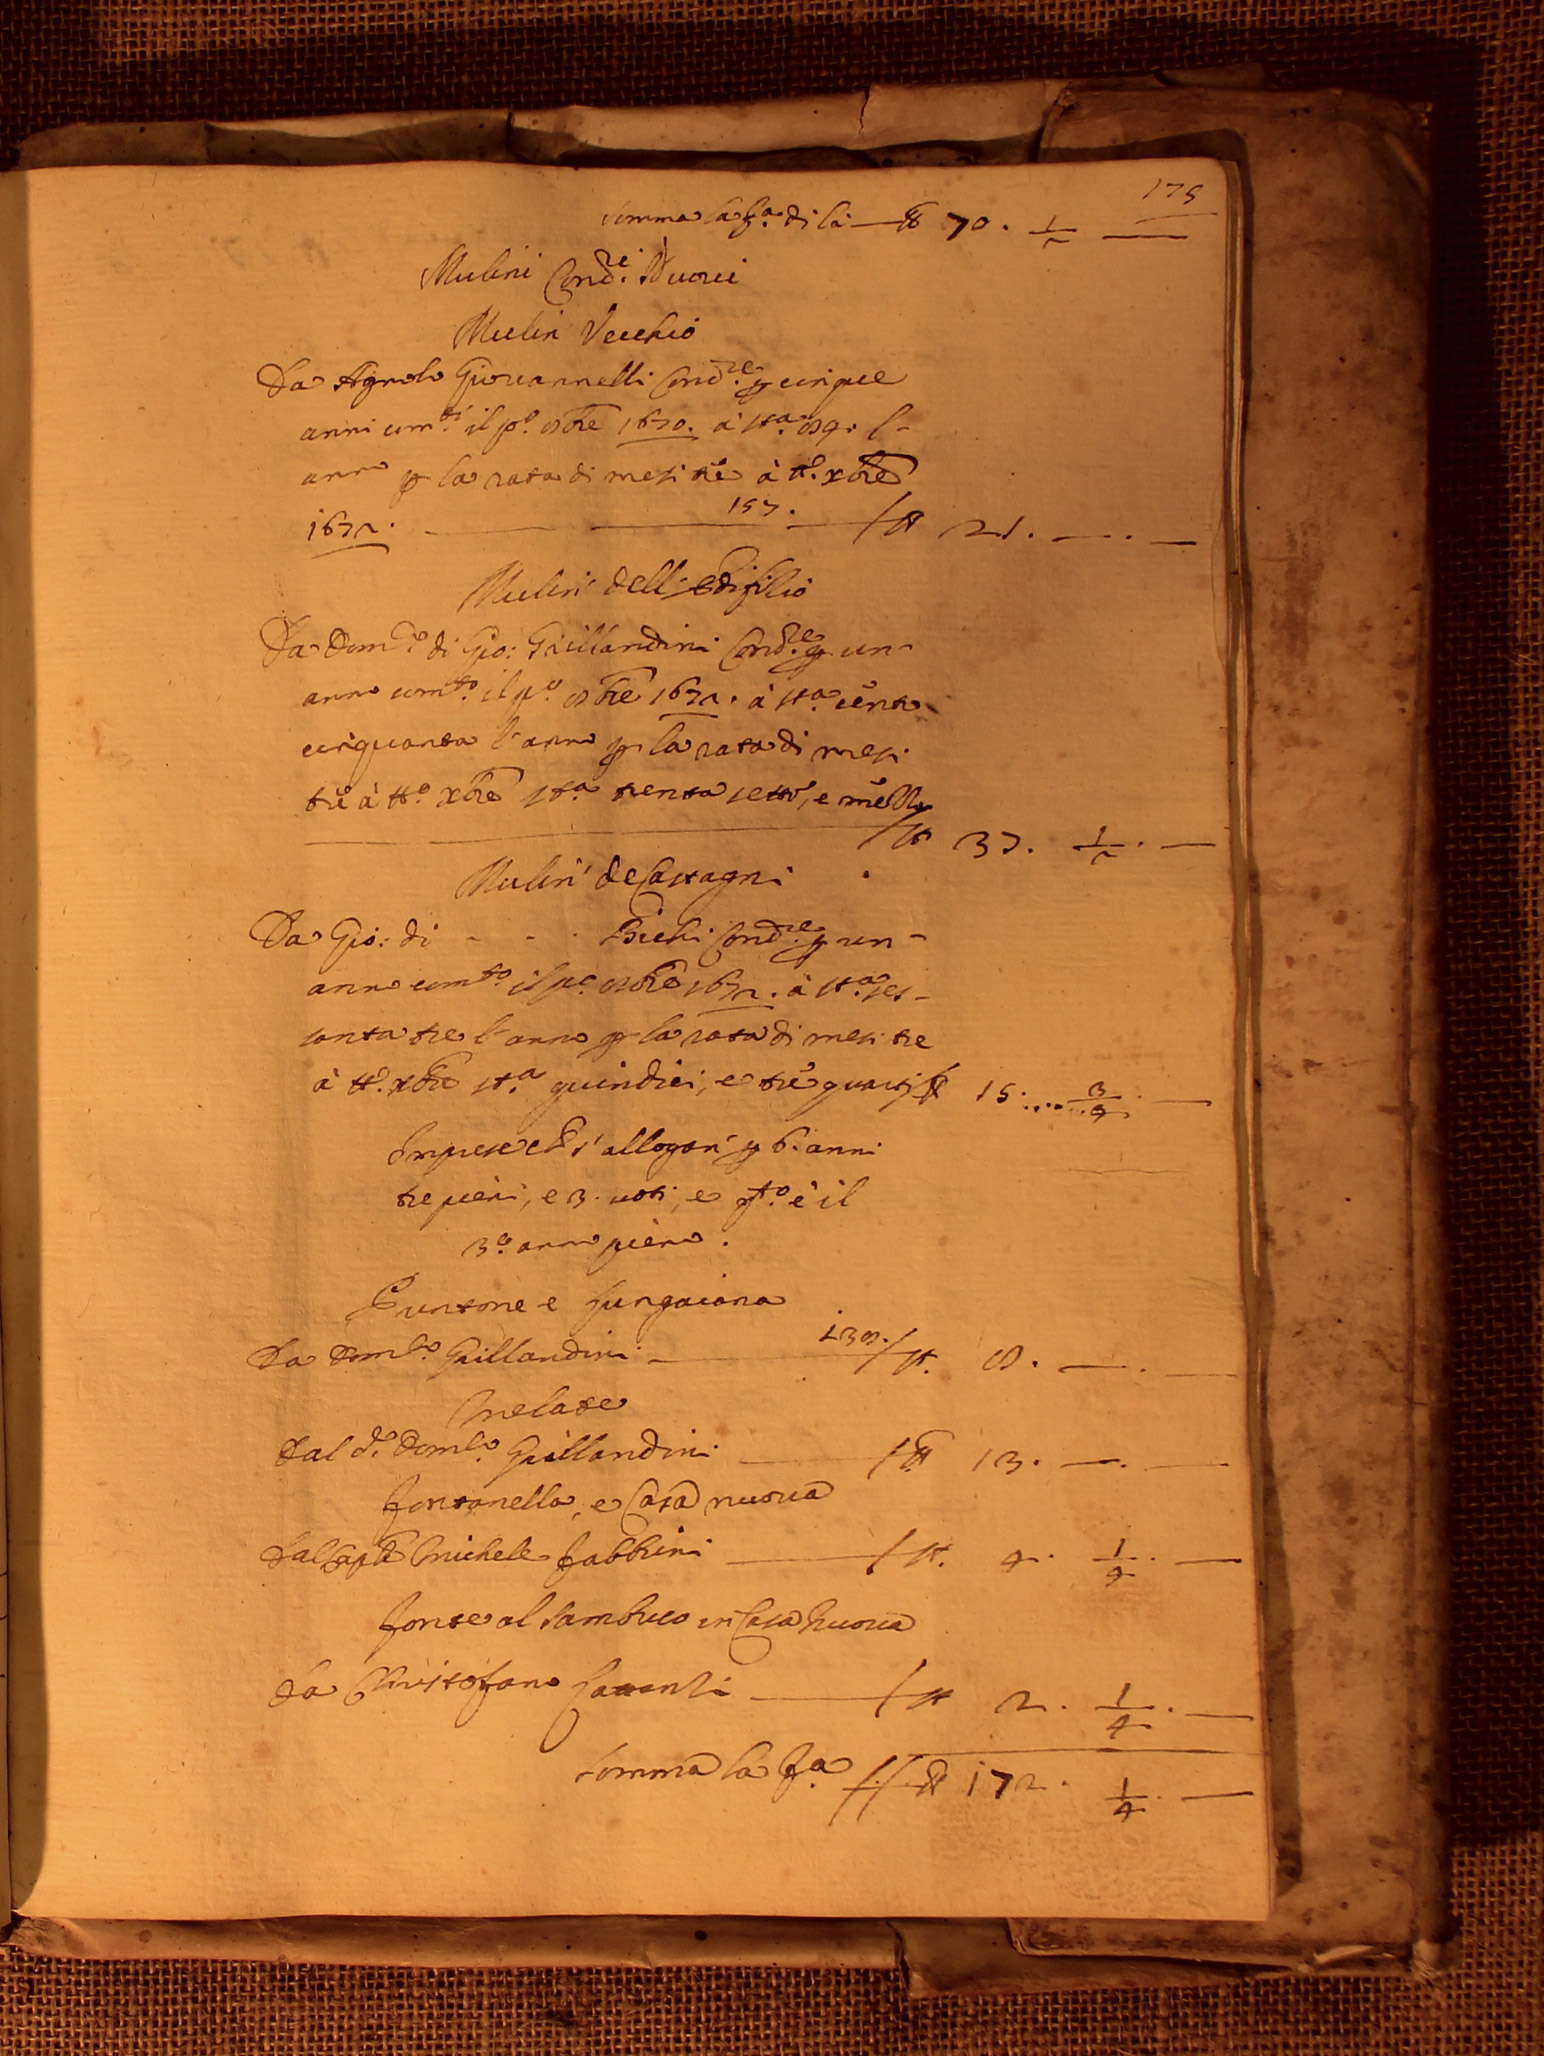 175
somma la fa. di là — st 70. 1/2 —
Mulini Condri. Nuovi
Mulin Vecchio
Da Agnolo Giovannelli Condre. p cinque
anni comti. il po. 8bre 1670. à sta. 84. l'
anno p la rata di mesi tre à tto. xbre
1672. — 157. — st 21. — . —
Mulin' dell'Edifitio
Da Domco. di Gio: Grillandini Condre. p un
anno comto. il po. 8bre 1672. à sta. cento
cinquanta l'anno p la rata di mesi
tre à tto. xbre sta trenta sette, e mezzo
— st 37. 1/2. —
Mulin' de Castagni
Da Gio: di - - . Bichi Condre. p un
anno comto. il po. 8bre 1672. à sta. ses-
santa tre l'anno p la rata di mesi tre
à tto. xbre sta. quindici, e tre quarti st 15. 3/4. —
Imprese che s'allogan' p 6. anni
tre pieni, e 3. voti, e qto. è il
3o. anno pieno.
Puntone e fungaiana
Da Domco. Grillandini — 138. st. 8. — . —
Melate
Dal do. Domco. Grillandini — st 13. — . —
fontanella, e Casa nuova
Dal Capn Michele fabbrini — st. 4. 1/4. —
fonte al sambuco in Casa Nuova
Da Christofano — st 2. 1/4. —
somma la fa. — st 172. 1/4. —